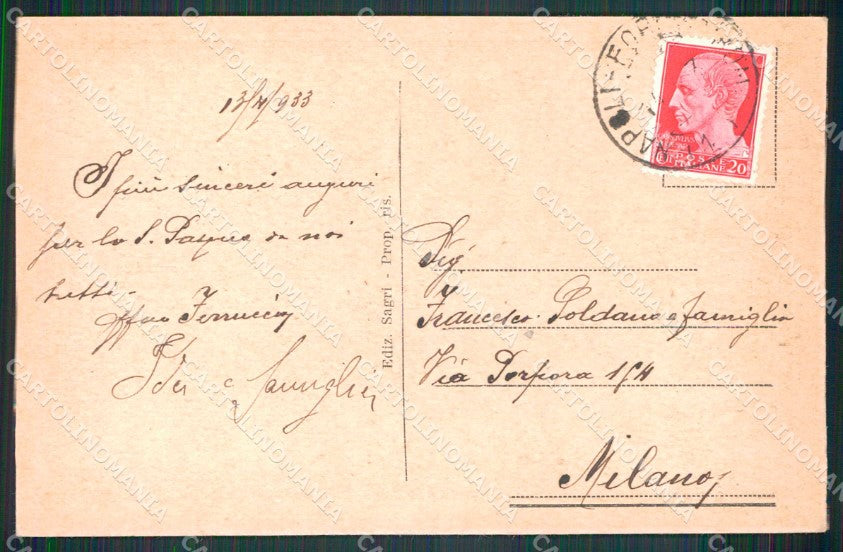 13/4/933
I più sinceri auguri
per la S. Pasqua da noi
tutti -
Ferruccio
e famiglia
Ediz. Sagri - Prop. ris.
NAPOLI
POSTE
ITALIANE 20
Sig.
Francesco Soldano e famiglia
Via Porpora 154
Milano
CARTOLINOMANIA